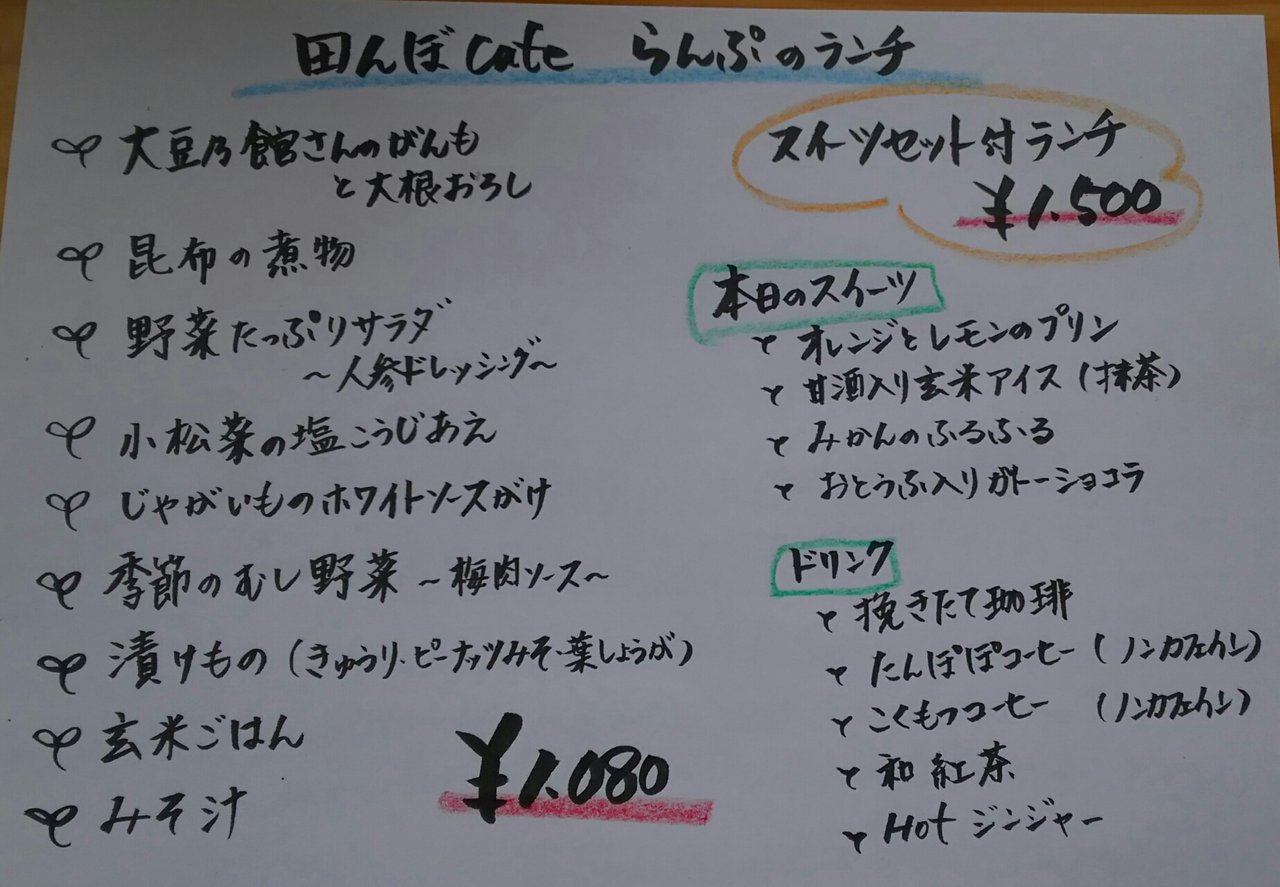 田んぼcafe らんぷのランチ
大豆乃館さんのがんも
と大根おろし
昆布の煮物
野菜たっぷりサラダ
～人参ドレッシング～
小松菜の塩こうじあえ
じゃがいものホワイトソースがけ
季節のむし野菜 ～梅肉ソース～
漬けもの(きゅうり・ピーナッツみそ・葉しょうが)
玄米ごはん
みそ汁
¥1.080
スイーツセット付ランチ
¥1.500
本日のスイーツ
オレンジとレモンのプリン
甘酒入り玄米アイス(抹茶)
みかんのふるふる
おとうふ入りガトーショコラ
ドリンク
挽きたて珈琲
たんぽぽコーヒー(ノンカフェイン)
こくもつコーヒー (ノンカフェイン)
和紅茶
Hot ジンジャー